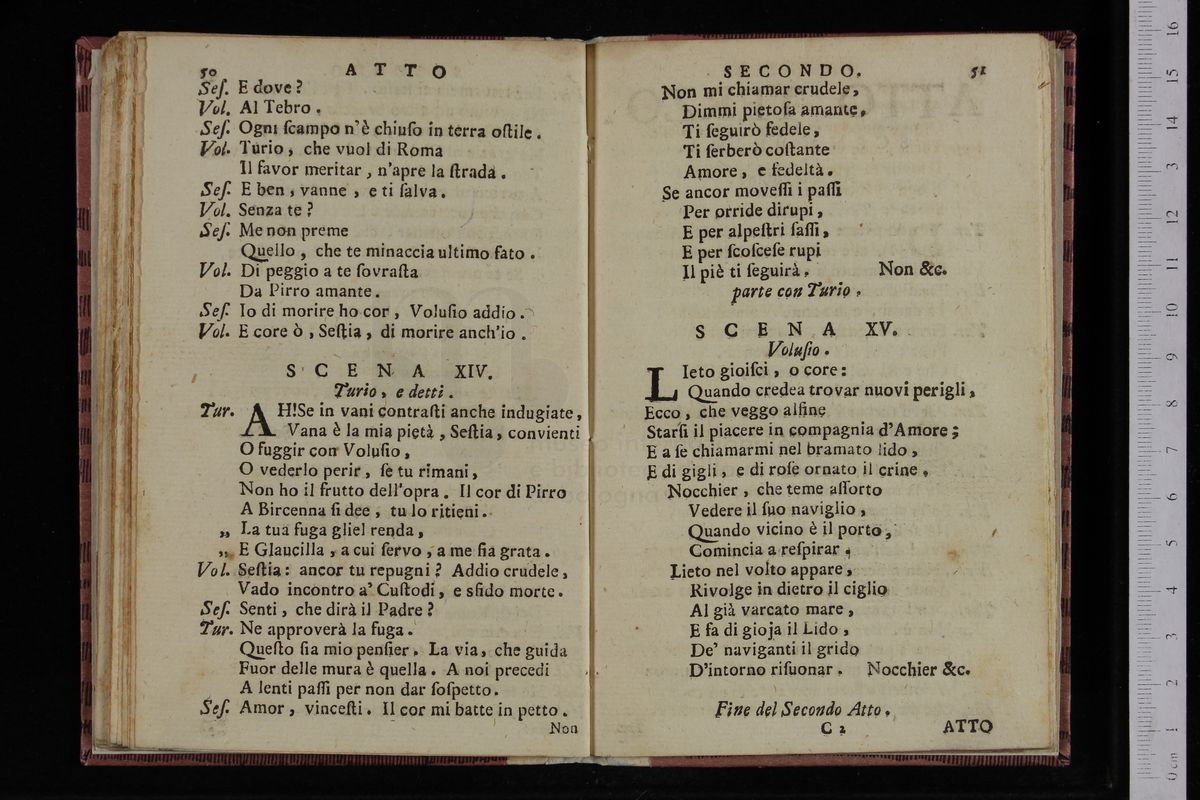 50 ATTO
Seſ. E dove?
Vol. Al Tebro.
Seſ. Ogni ſcampo n'è chiuſo in terra oſtile.
Vol. Turio, che vuol di Roma
Il favor meritar, n'apre la ſtrada.
Seſ. E ben, vanne, e ti ſalva.
Vol. Senza te?
Seſ. Me non preme
Quello, che te minaccia ultimo fato.
Vol. Di peggio a te ſovraſta
Da Pirro amante.
Seſ. Io di morire ho cor, Voluſio addio.
Vol. E core ò, Seſtia, di morire anch'io.
SCENA XIV.
Turio, e detti.
Tur. AH!Se in vani contraſti anche indugiate,
Vana è la mia pietà, Seſtia, convienti
O fuggir con Voluſio,
O vederlo perir, ſe tu rimani,
Non ho il frutto dell'opra. Il cor di Pirro
A Bircenna ſi dee, tu lo ritieni.
„ La tua fuga gliel renda,
„ E Glaucilla, a cui ſervo, a me ſia grata.
Vol. Seſtia: ancor tu repugni? Addio crudele,
Vado incontro a' Cuſtodi, e sfido morte.
Seſ. Senti, che dirà il Padre?
Tur. Ne approverà la fuga.
Queſto ſia mio penſier. La via, che guida
Fuor delle mura è quella. A noi precedi
A lenti paſſi per non dar ſoſpetto.
Seſ. Amor, vinceſti. Il cor mi batte in petto.
Non
SECONDO. 51
Non mi chiamar crudele,
Dimmi pietoſa amante,
Ti ſeguirò fedele,
Ti ſerberò coſtante
Amore, e fedeltà.
Se ancor moveſſi i paſſi
Per orride dirupi,
E per alpeſtri ſaſſi,
E per ſcoſceſe rupi
Il piè ti ſeguirà. Non &c.
parte con Turio.
SCENA XV.
Voluſio.
LIeto gioiſci, o core:
Quando credea trovar nuovi perigli,
Ecco, che veggo alfine
Starſi il piacere in compagnia d'Amore;
E a ſe chiamarmi nel bramato lido,
E di gigli, e di roſe ornato il crine.
Nocchier, che teme aſſorto
Vedere il ſuo naviglio,
Quando vicino è il porto,
Comincia a reſpirar.
Lieto nel volto appare,
Rivolge in dietro il ciglio
Al già varcato mare,
E fa di gioja il Lido,
De' naviganti il grido
D'intorno riſuonar. Nocchier &c.
Fine del Secondo Atto.
C 2 ATTO
0 cm 1 2 3 4 5 6 7 8 9 10 11 12 13 14 15 16